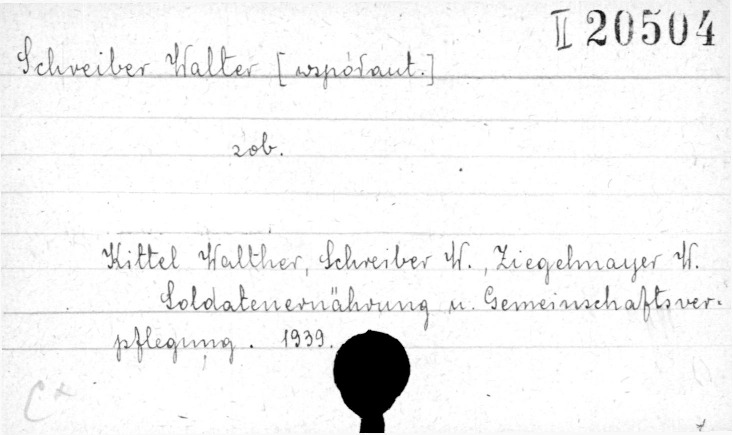 II 20504
Schreiber Walter [współaut.]
zob.
Kittel Walther, Schreiber W., Ziegelmayer W.
Soldatenernährung u. Gemeinschaftsver-
pflegung. 1939.